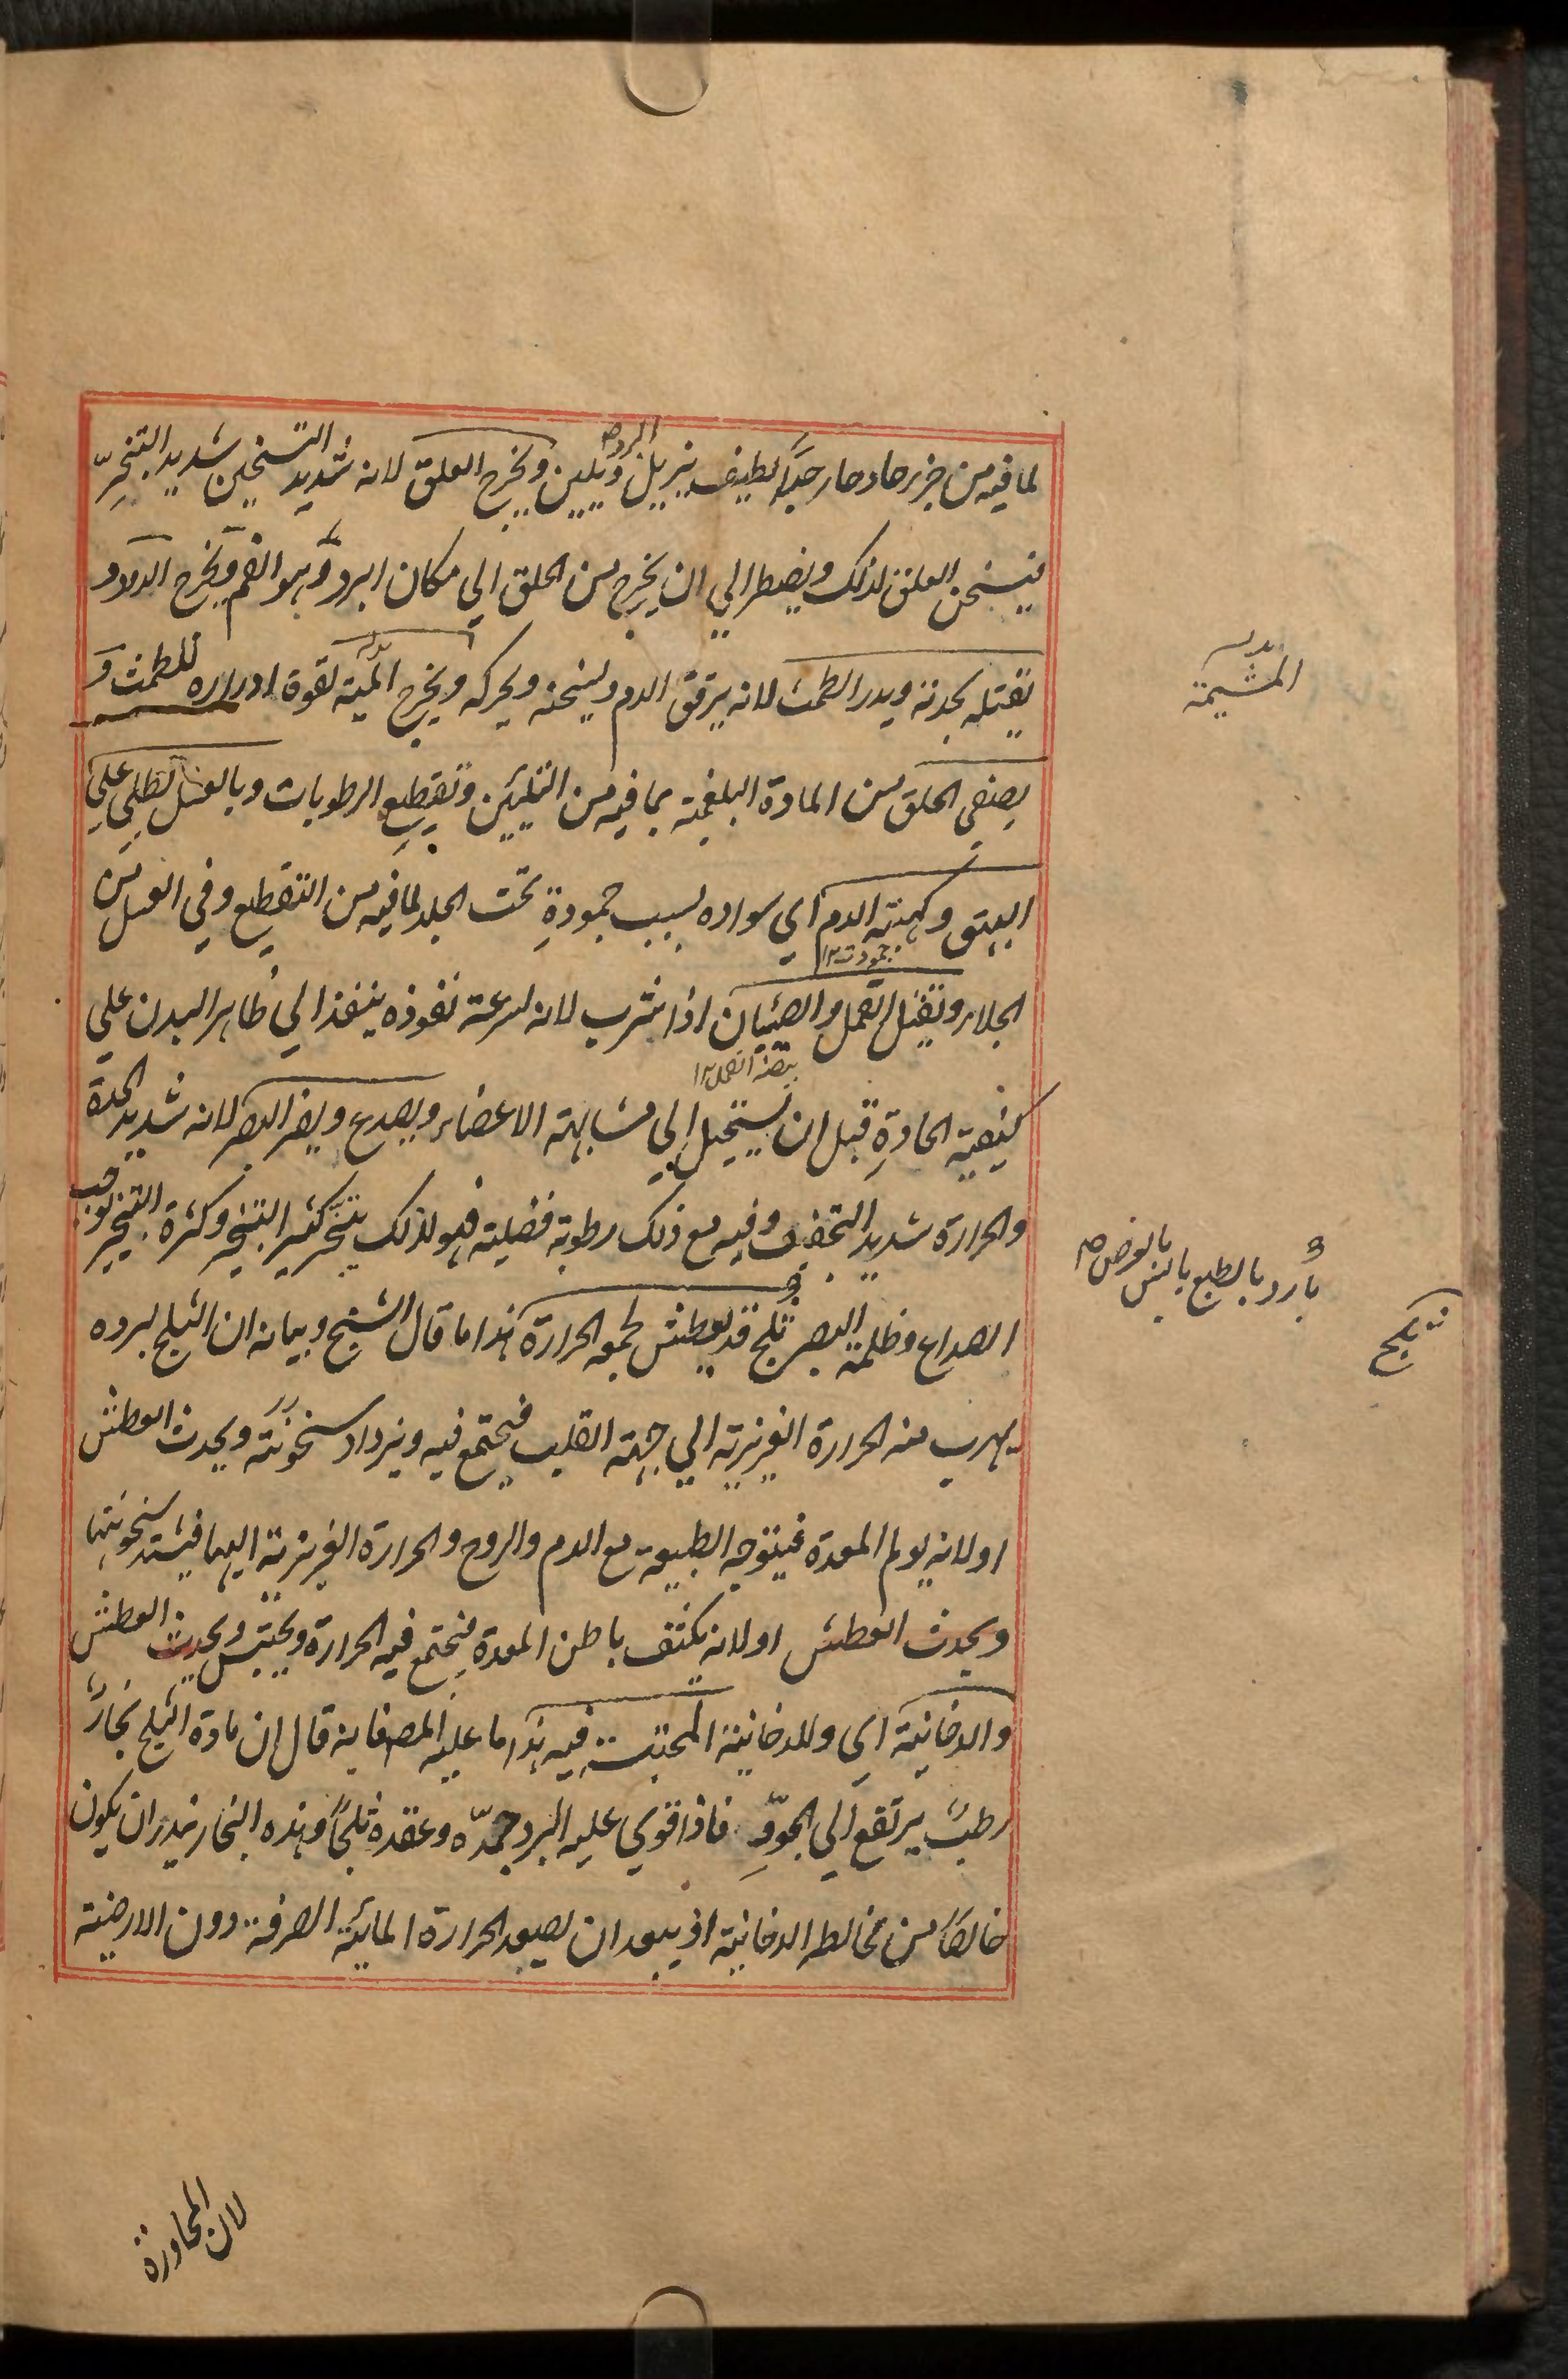 لما فيه من جزء حاد حار جداً لطيف يزيل ويلين ويخرج العلق لانه شديد التسخين شديد التبخر
البرد ص
فيسخن العلق لذلك ويضطر الي ان يخرج من الحلق الي مكان ابرد وهو الفم ويخرج الدود و
يقتله بحدته ويدر الطمث لانه يرقق الدم ويسخنه ويحركه ويخرج المية لقوة ادراره للطمث و
المشيمة
يصفي الحلق من المادة البلغمية بما فيه من التليين وتقطيع الرطوبات وبالعسل يطلي علي
البهق وكهبة الدم اي سواده بسبب جموده تحت الجلد لما فيه من التقطيع وفي العسل من
جمودت ١٢
الجلاء ويقتل القمل والصئبان اذا شرب لانه لسرعة نفوذه ينفذ الي ظاهر البدن علي
بيضه القمل ١٢
كيفيته الحادة قبل ان يستحيل الي مشابهة الاعضاء ويصدع ويضر البصر لانه شديد الحدة
والحرارة شديد التجفيف وفيه مع ذلك رطوبة فضلية فهو لذلك يتبخر كثير التبخير وكثرة التبخير توجب
الصداع وظلمة البصر ثلج قد يعطش لجمعه الحرارة هذا ما قال الشيخ وبيانه ان الثلج لبرده
بارد بالطبع يابس بالعرض ص
ثلج
يهرب منه الحرارة الغريزية الي جهة القلب فيجتمع فيه ويزداد سخونته ويحدث العطش
او لانه يولم المعدة فيتوجه الطبيعة مع الدم والروح والحرارة الغريزية اليها فيشتد سخونتها
ويحدث العطش او لانه يكثف باطن المعدة فيجتمع فيه الحرارة ويحتبس ويحدث العطش
والدخانية اي وللدخانية المحتبسة فيه هذا ما عليه المص فانه قال ان مادة الثلج بخار
رطب يرتفع الي الجو فاذا قوي عليه البرد جمده وعقده ثلجاً وهذه البخار يندر ان يكون
خالصاً من مخالطه الدخانية اذ يبعد ان يصعد الحرارة المائية الصرفة دون الارضية
لان المجاورة